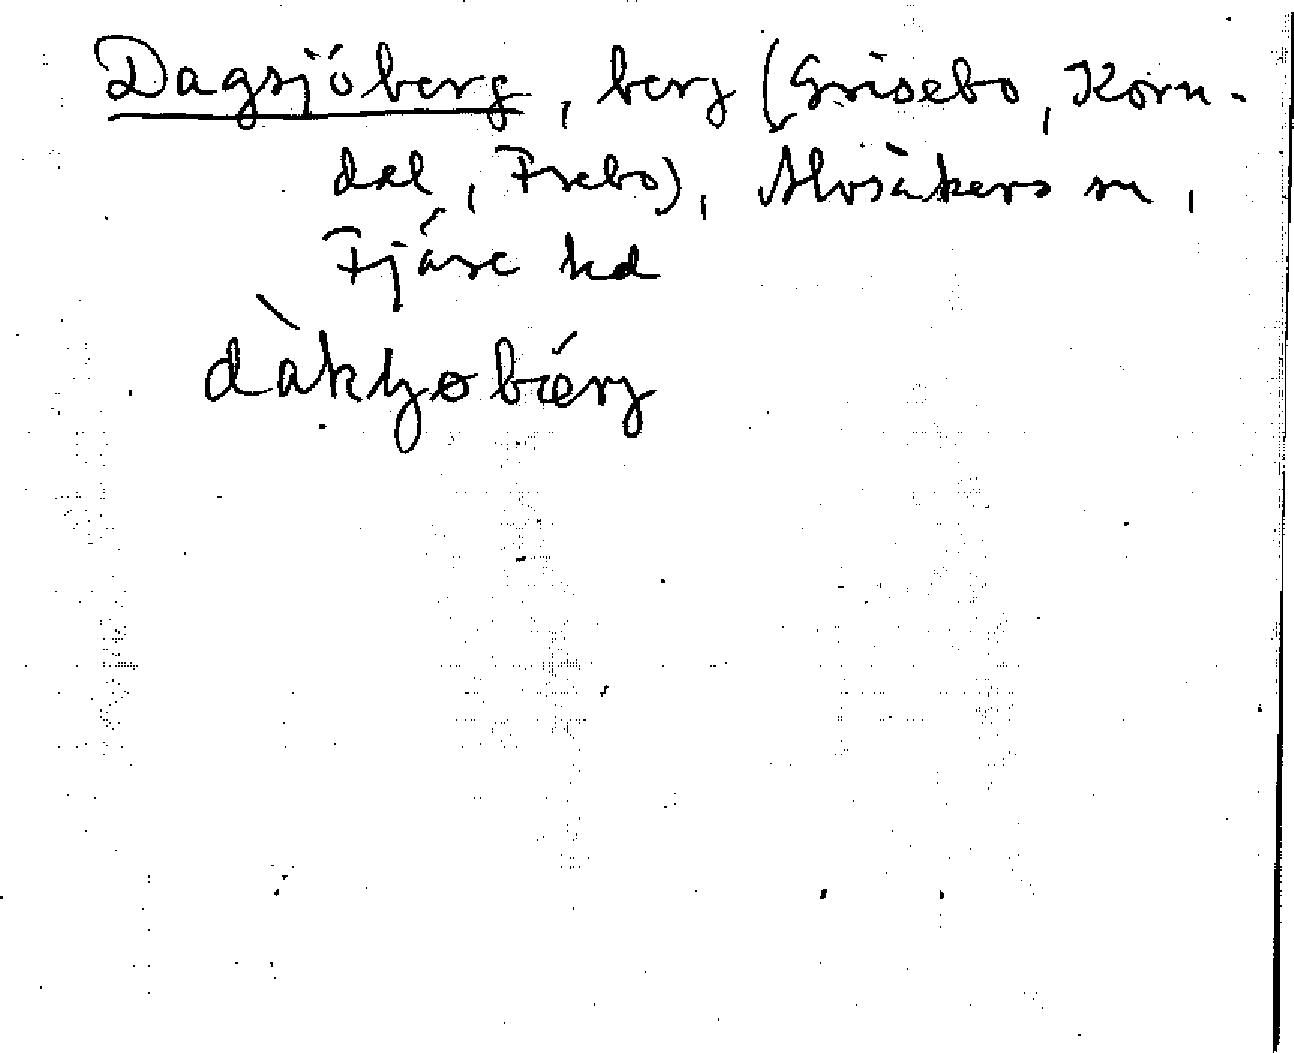 Dagsjöberg, berg (Grisebo, Korn-
dal, Frebo), Älvsåkers sn,
Fjäre hd